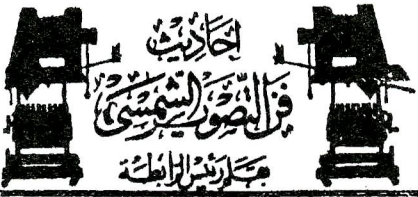 احاديث
فن التصوير الشمسى
بقلم رئيس الرابطة